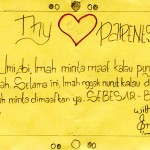 Thy PARENTS
Umi, Abi, Imah minta maaf kalau pun
ah. Selama ini, Imah nggak nurut kalau di
h minta dimaafkan ya. SEBESAR - B
with